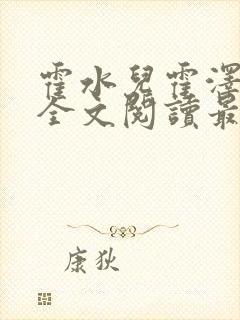 霍水兒霍澤
全文閱讀最
康狄